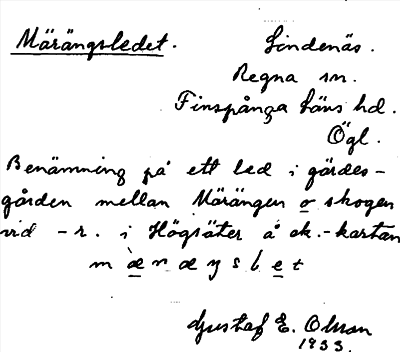 Märängsledet.
Lindenäs.
Regna sn.
Finspånga läns hd.
Ögl.
Benämning på ett led i gärdes-
gården mellan Märängen o skogen
vid -r. i Högsäter å ek.-kartan
Gustaf E. Olsson
1933.